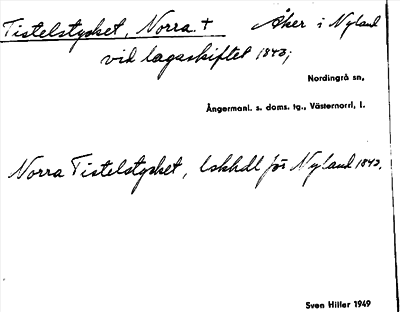 Tistelstycket, Norra. + Åker i Nyland
vid lagaskiftet 1843;
Nordingrå sn,
Ångermanl. s. doms. tg., Västernorrl, l.
Norra Tistelstycket, lskhdl för Nyland 1843.
Sven Hiller 1949